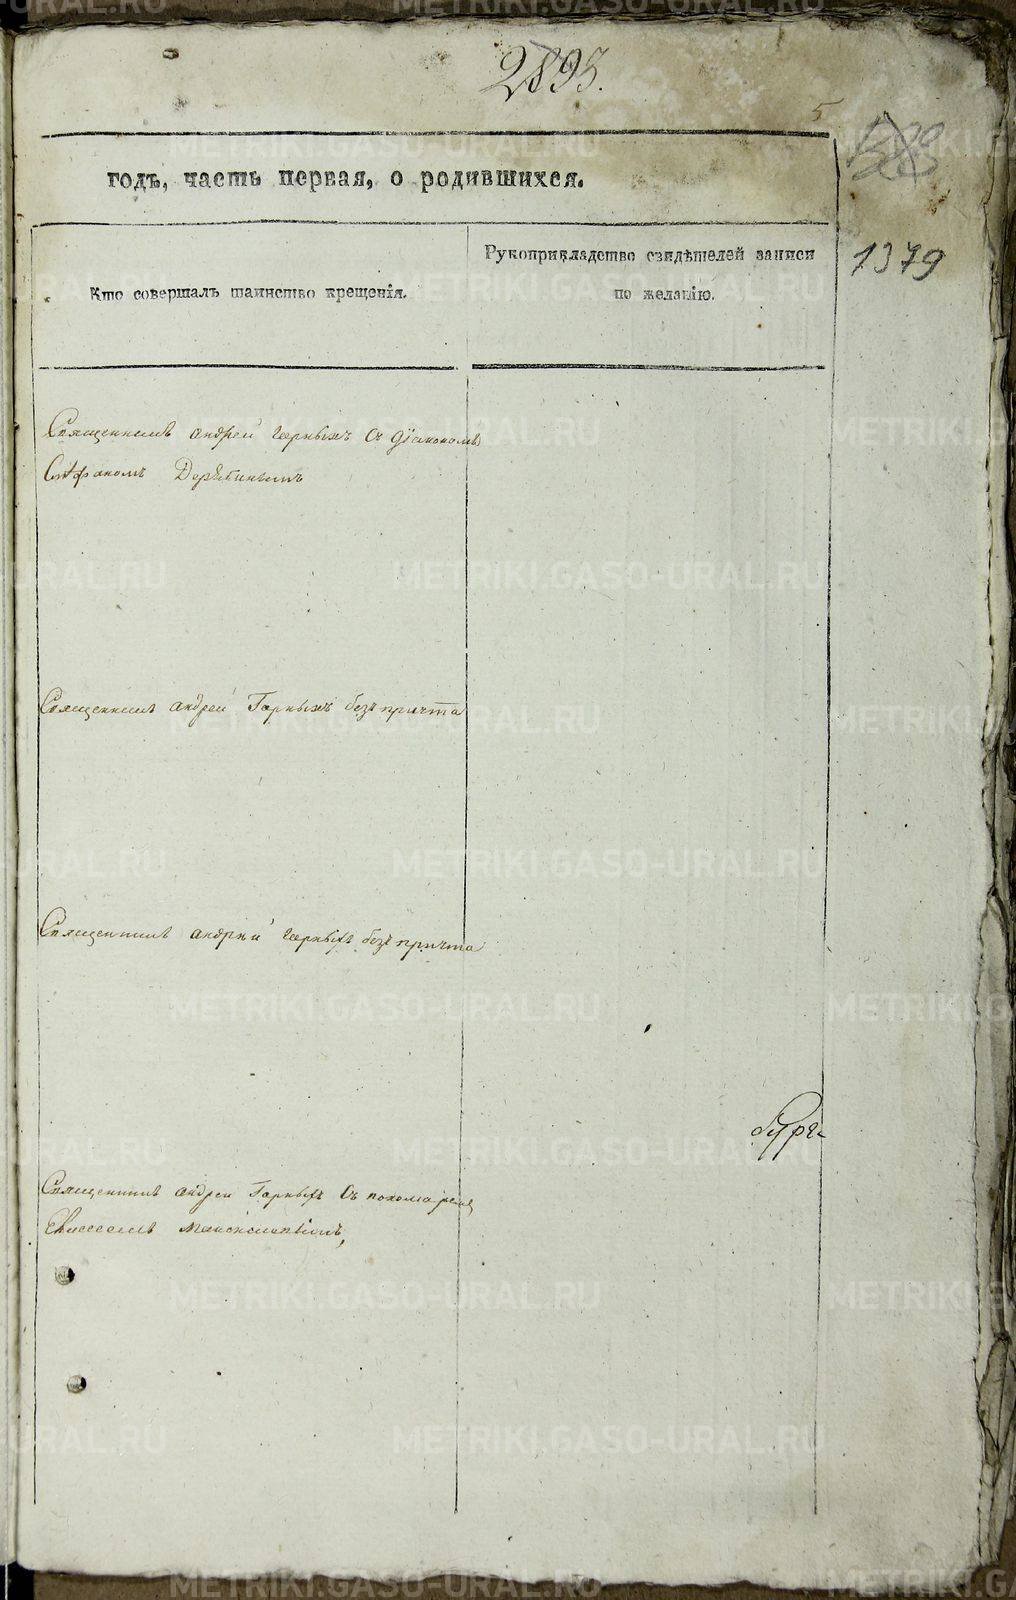 2893.
5
1379
годъ, часть первая, о родившихся.
Кто совершалъ таинство крещенія.
Рукоприкладство свидѣтелей записи
по желанію.
Священникъ Андрей Горныхъ съ діакономъ
Стефаномъ
Священникъ Андрей Горныхъ безъ причта
Священникъ Андрей Горныхъ безъ причта
Священникъ Андрей Горныхъ съ пономаремъ
METRIKI.GASO-URAL.RU